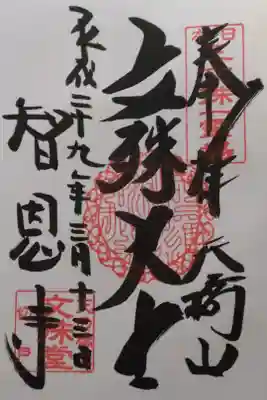 奉拝
天橋山
文殊大士
平成二十九年三月十三日
智恩寺
文殊堂